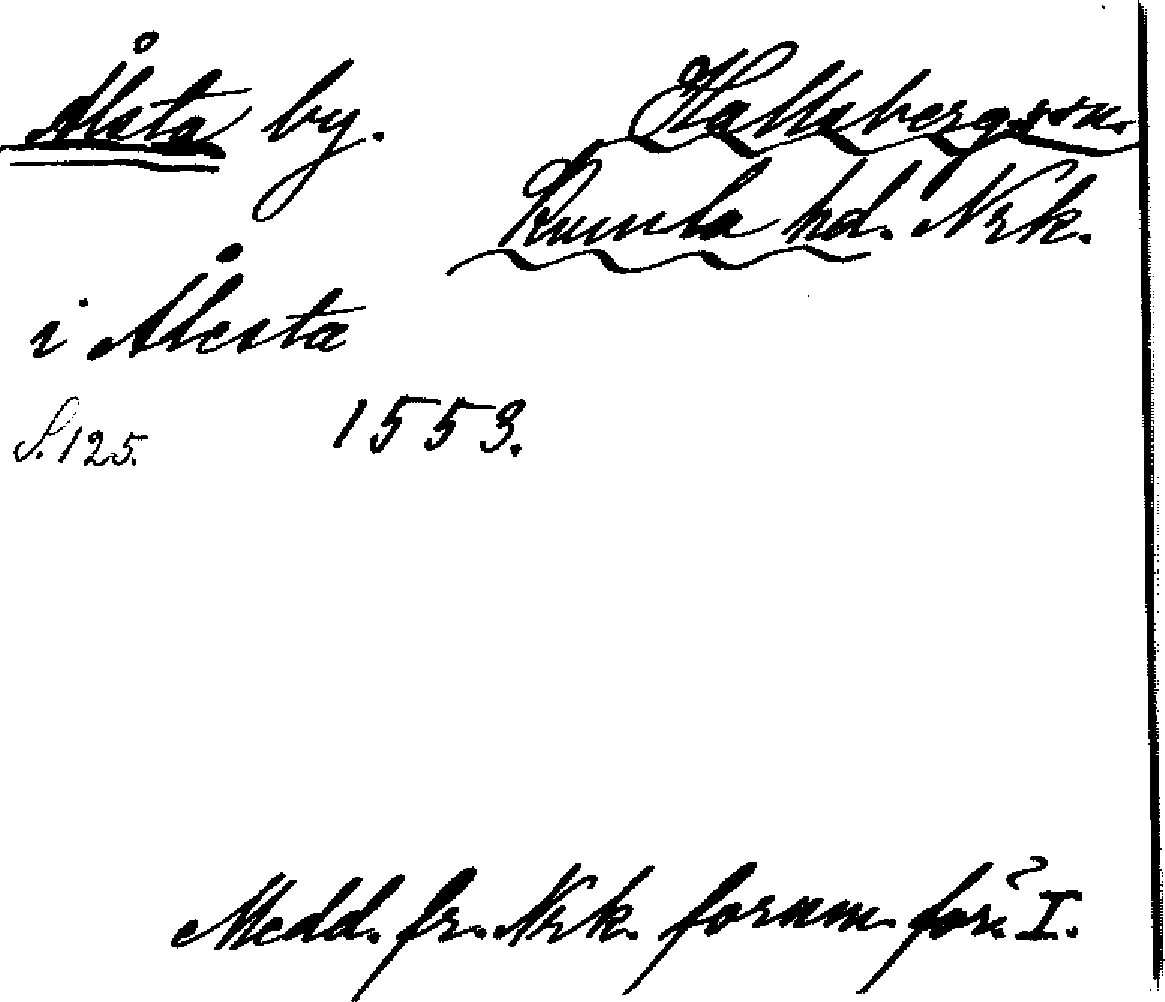 Ålsta by. Hallsbergs sn.
Kumla hd. Nrk.
i Ålesta
S. 125. 1553.
Medd. fr. Nrk. fornm. för. I.